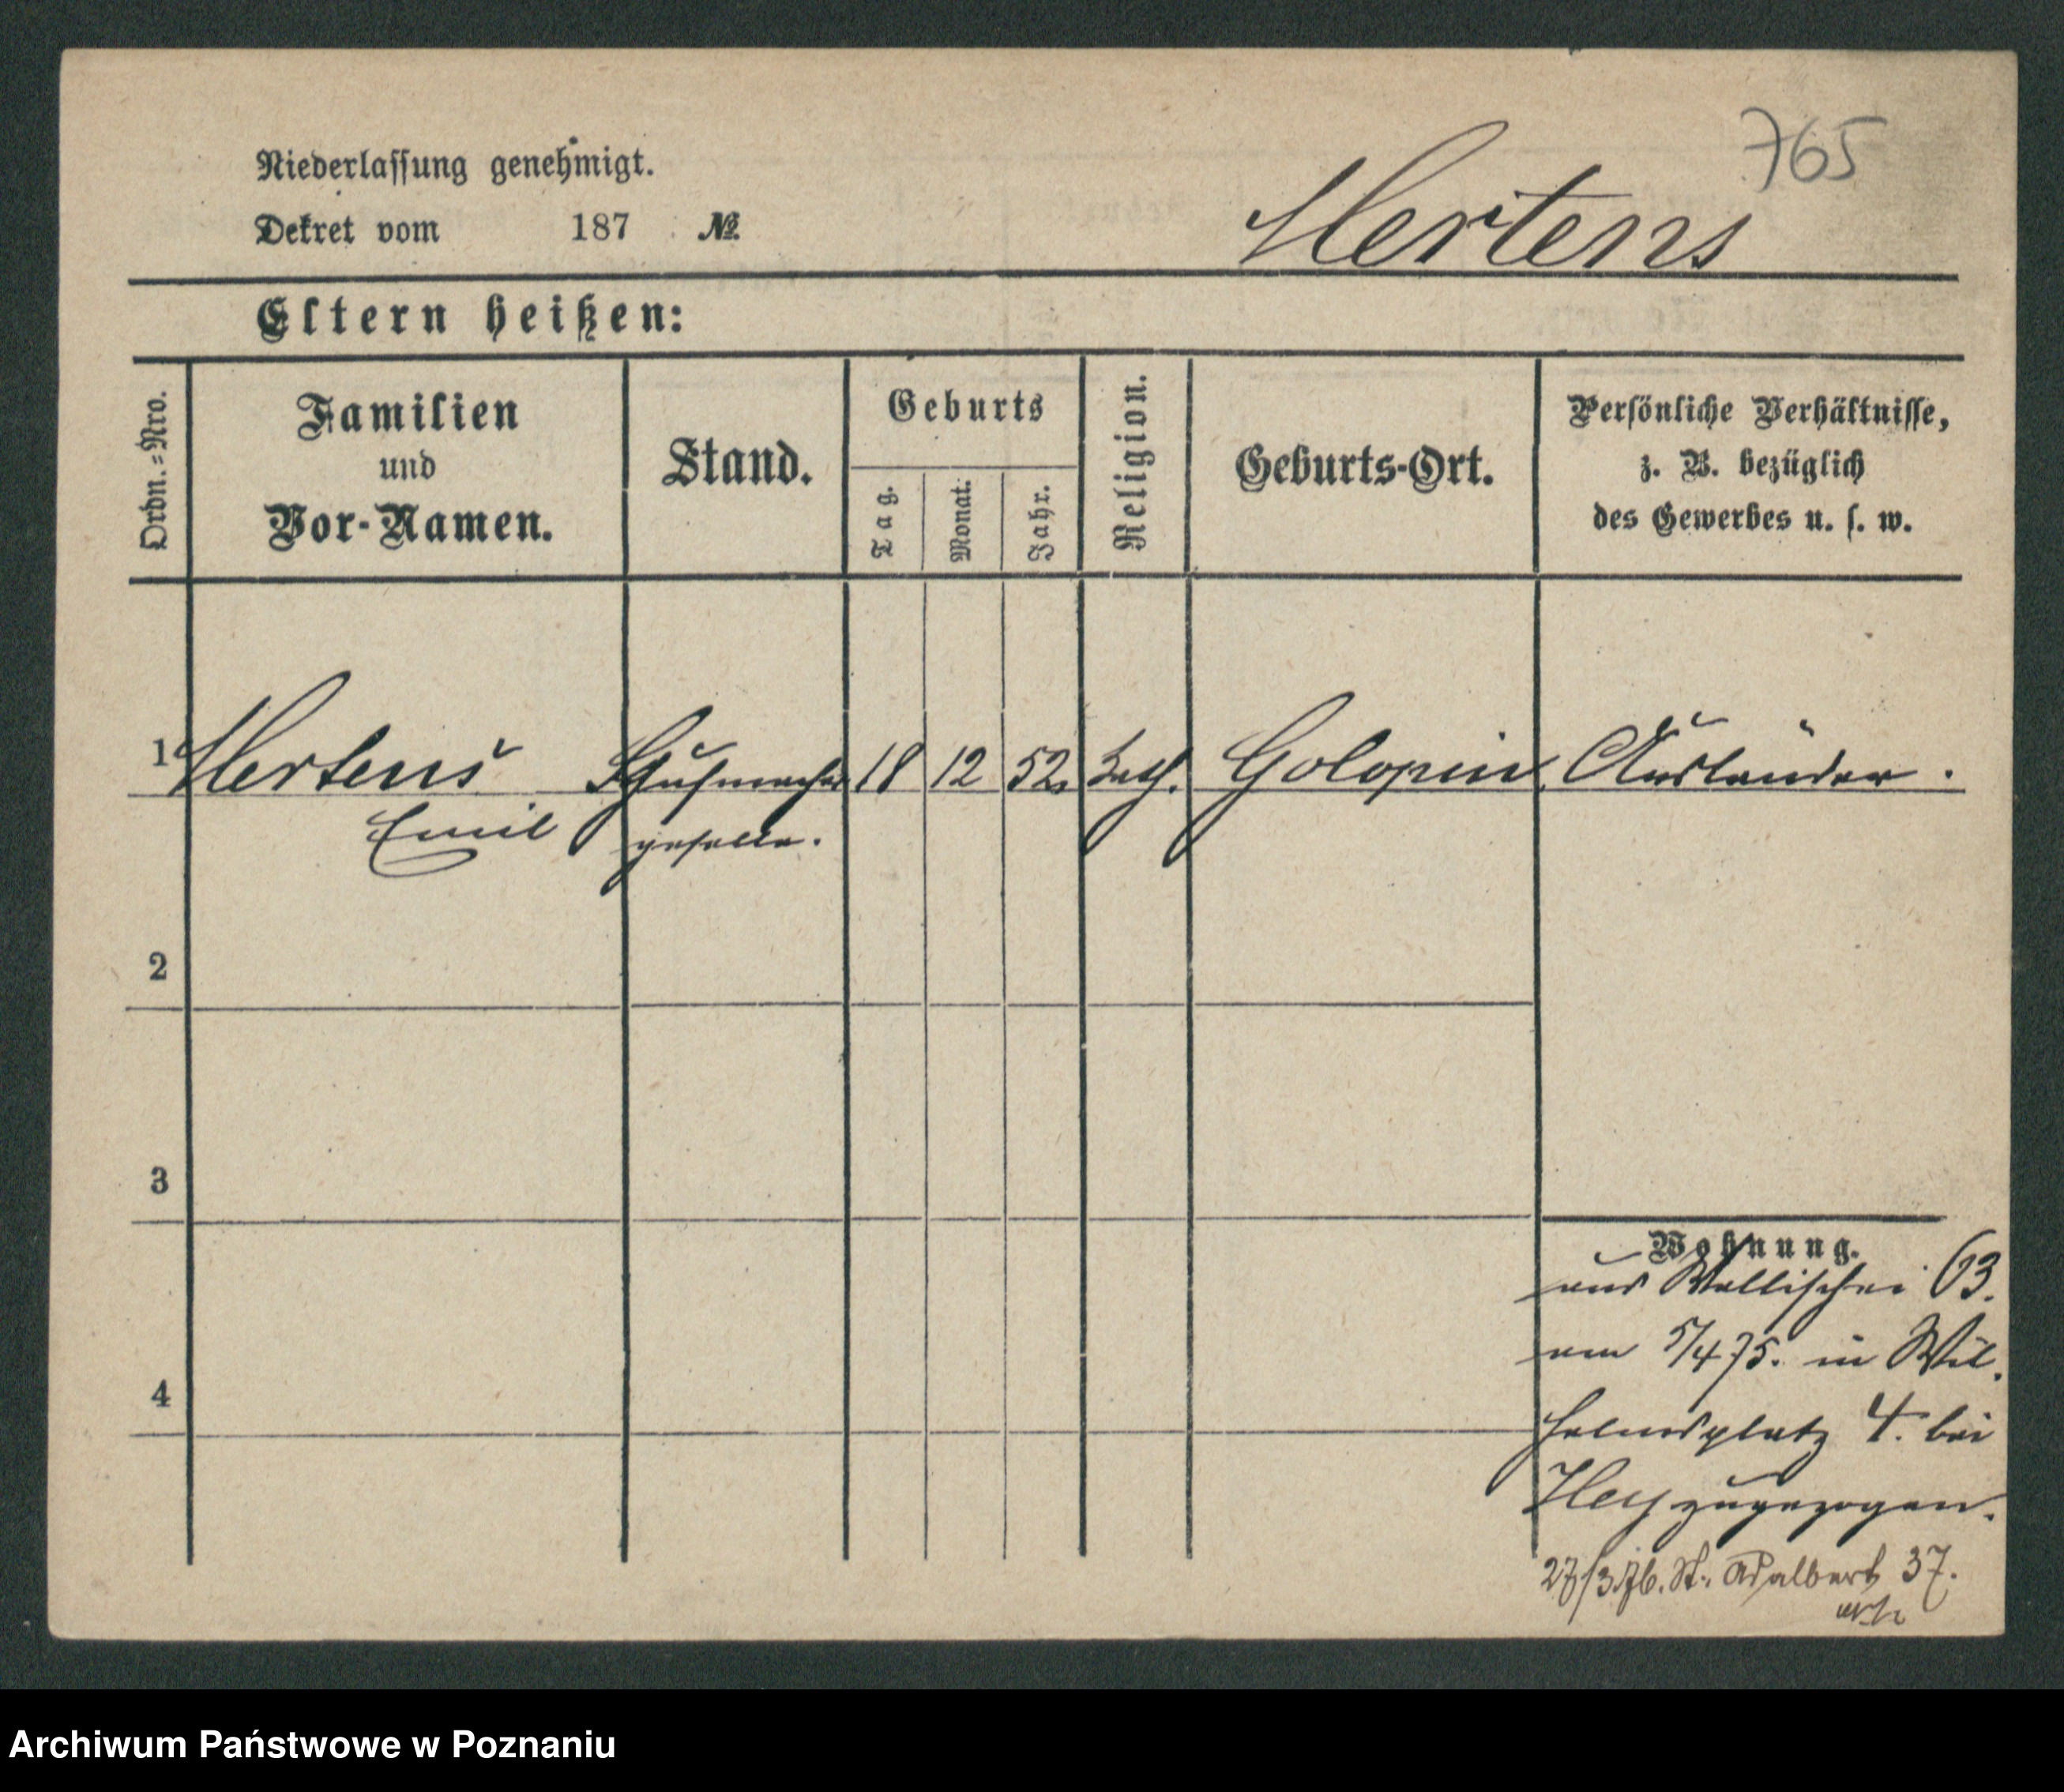 765
Niederlassung genehmigt.
Dekret vom 187 №
Mertens
Eltern heißen:
Ordn.=Nro.
Familien
und
Vor-Namen.
Stand.
Geburts
Tag.
Monat.
Jahr.
Religion.
Geburts-Ort.
Persönliche Verhältnisse,
z. B. bezüglich
des Gewerbes u. s. w.
1 Mertens Schuhmacher 18 12 52 Golopin Ausländer.
Emil geselle.
2
3
4
Wohnung.
aus Wallischei 63.
am 5/4 75. in Wil-
helmsplatz 4. bei
Hey zugezogen.
27/3.76. St. Adalbert 37.
Archiwum Państwowe w Poznaniu